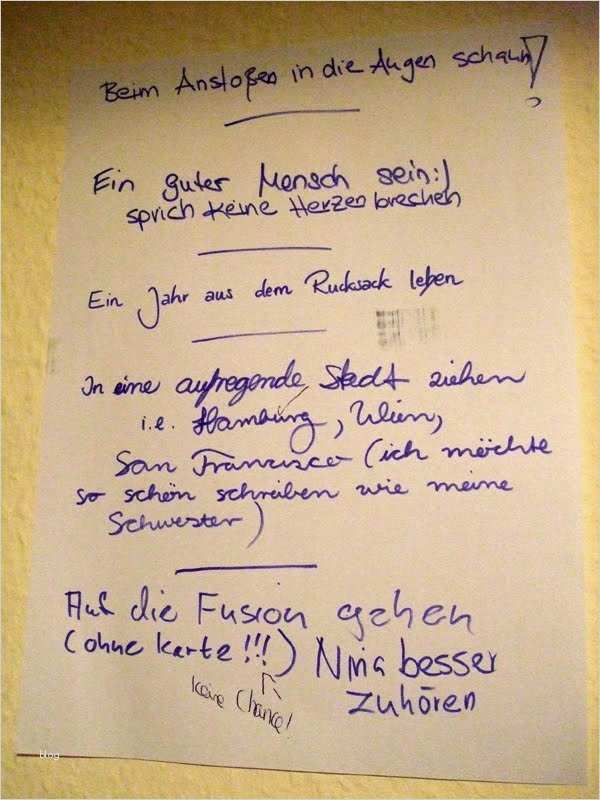 Beim Anstoßen in die Augen schaun!
Ein guter Mensch sein:)
sprich keine Herzen brechen
Ein Jahr aus dem Rucksack leben
In eine aufregende Stadt ziehen
i.e. Hamburg, Wien,
San Francisco (ich möchte
so schön schreiben wie meine
Schwester)
Auf die Fusion gehen
(ohne Karte!!!)
keine Chance!
Nina besser
zuhören
blog